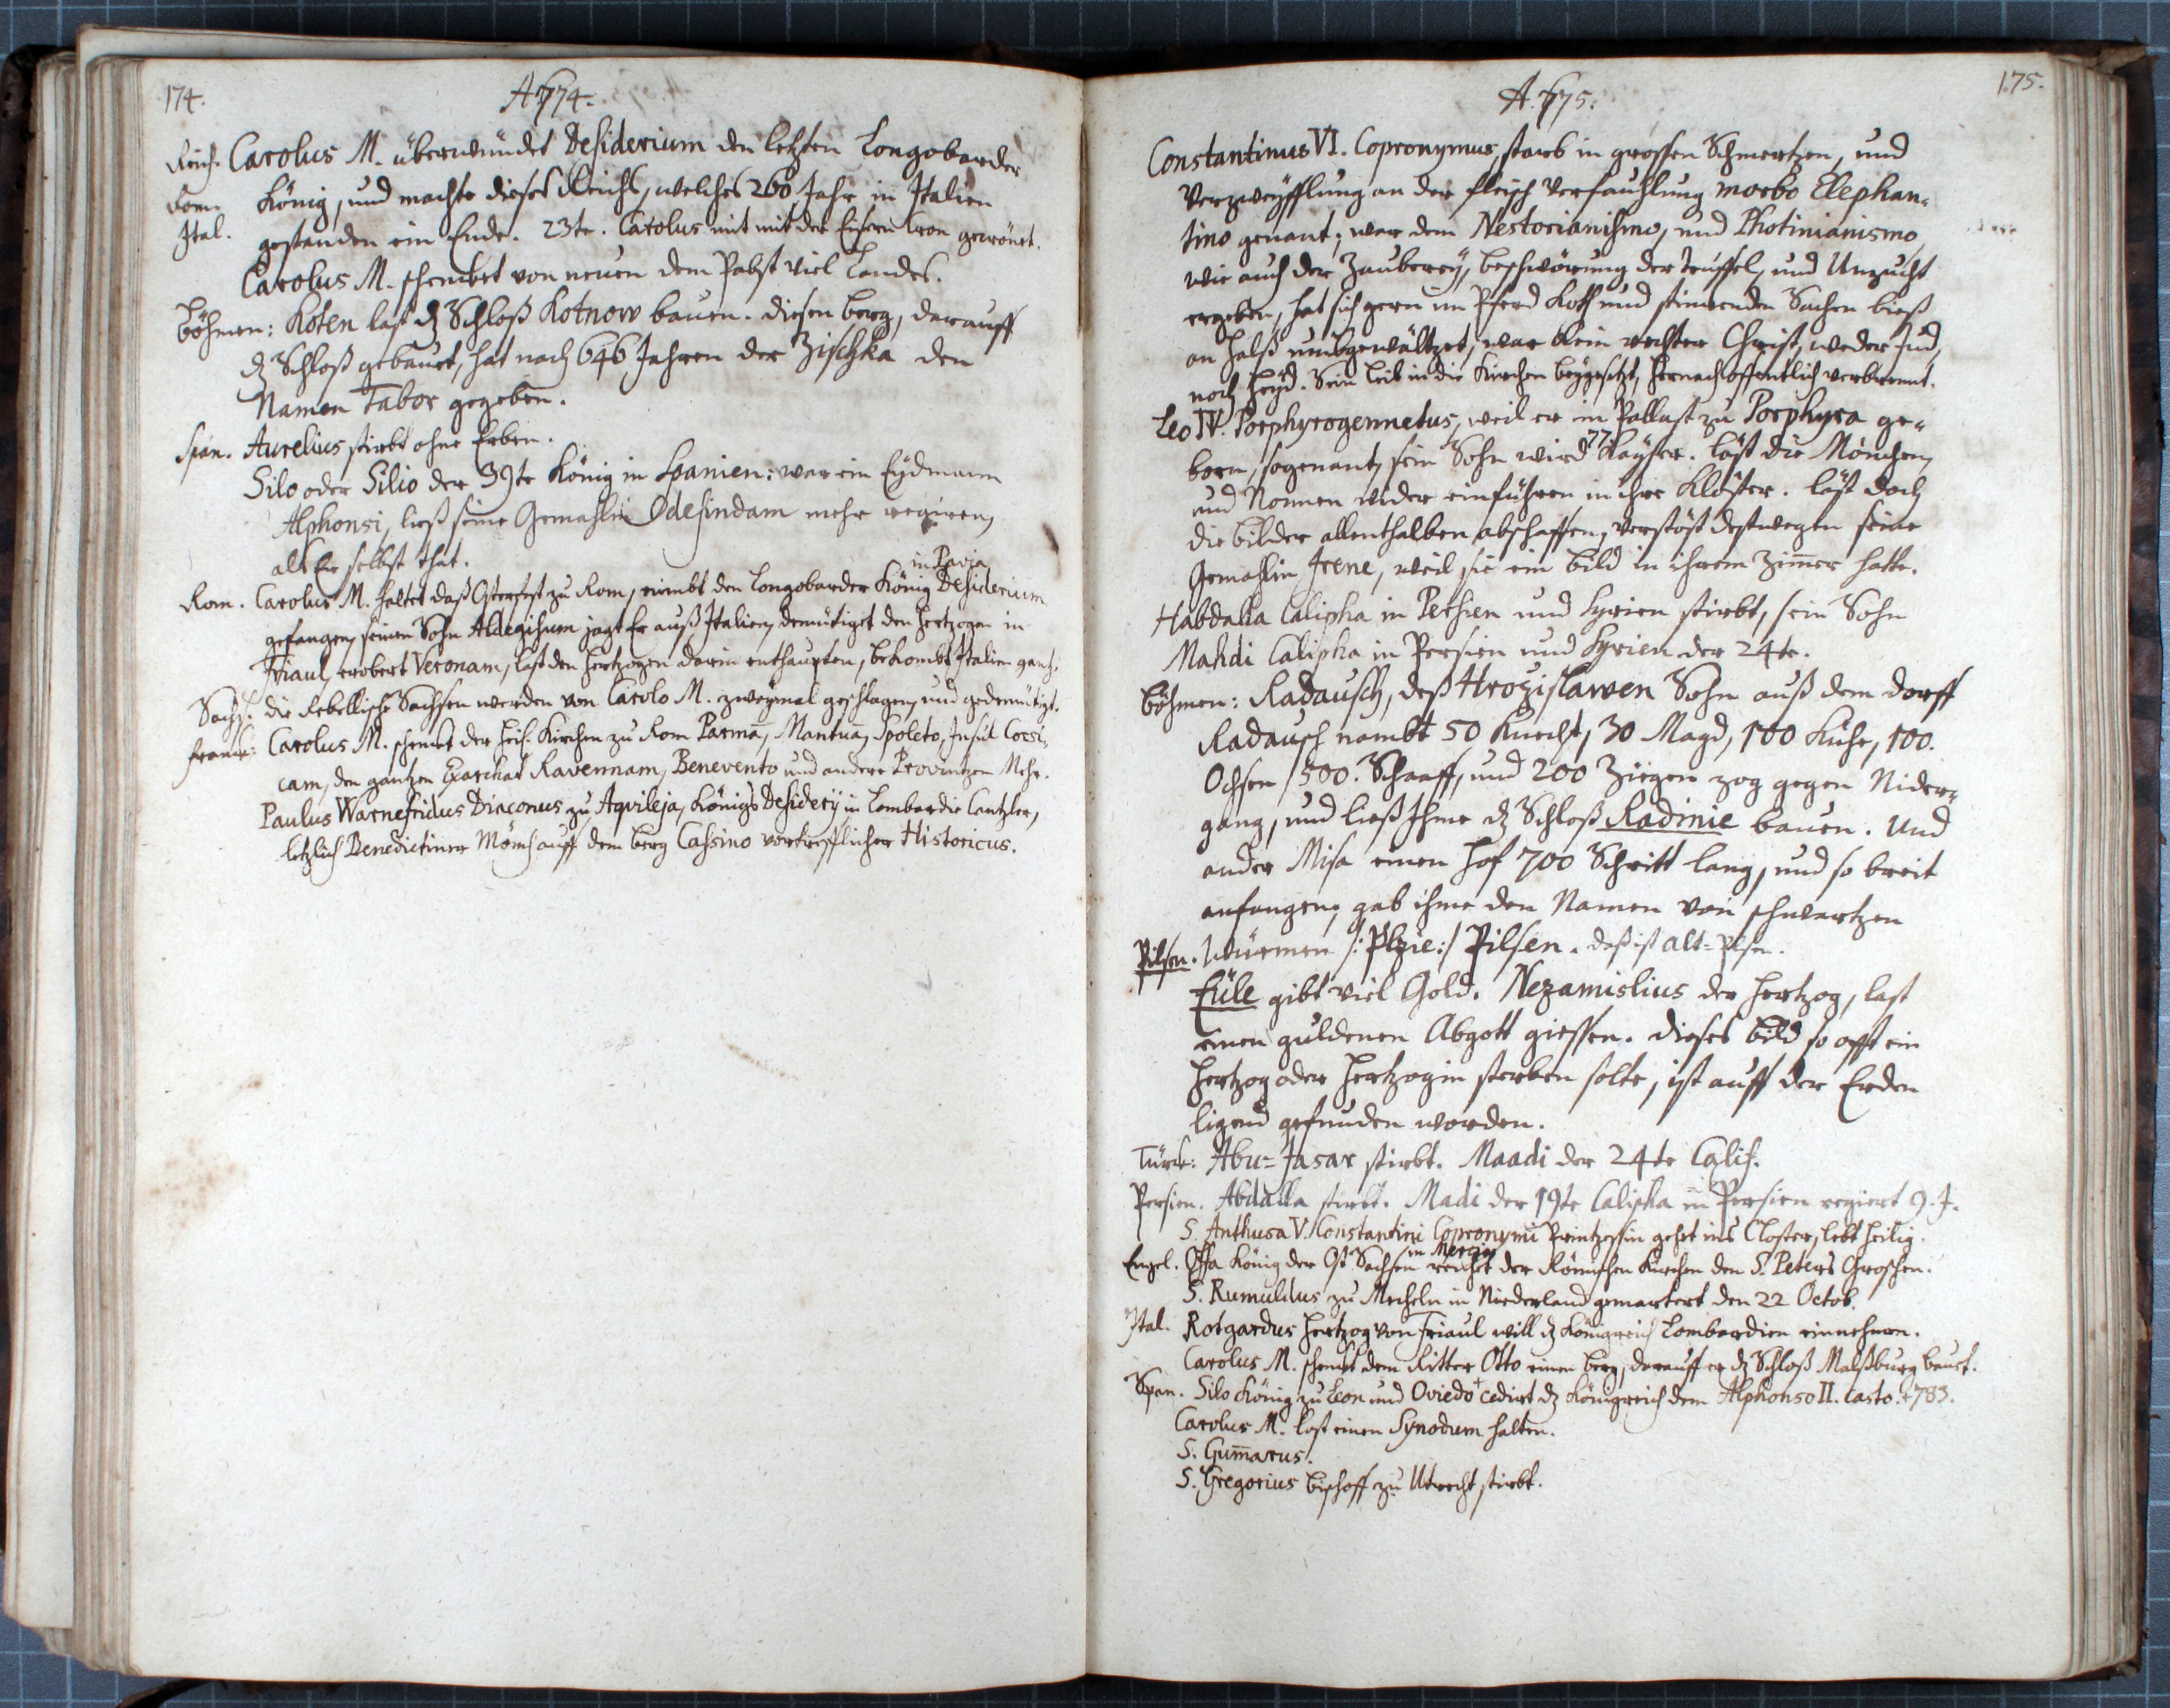 174.
A. 774.
Reich. Carolus M. überwündet Desiderium den letzten Longobarder
Rom. König, und machte dieses Reichs, welches 260 Jahr in Italien
Ital. gestanden ein Ende. 23te. Carolus mit der Eisern Cron gecrönet.
Carolus M. schencket von neuen dem Pabst viel Landes.
Böhmen: Koten last dz Schloß Kotnow bauen. diesen berg, darauff
dz Schloß gebauet, hat nach 646 Jahren der Zischka den
Namen Tabor gegeben.
Span. Aurelius stirbt ohne Erben.
Silo oder Silio der 39te König in Spanien: war ein Eydmann
Alphonsi, ließ seine Gemahlin Odesindam mehr regiren,
als Er selbst that.
in Pavia
Rom. Carolus M. haltet daß Osterfest zu Rom, nimbt den Longobarder König Desiderium
gefangen, seinen Sohn Aldegisum jagt Er auß Italien, demütiget den Hertzogen in
Friaul, erobert Veronam, last den Hertzogen darin enthaupten, bekombt Italien gantz.
Sachs. die Rebellische Sachsen werden von Carolo M. zweymal geschlagen, und gedemütigt.
Franck: Carolus M. schenckt der Heil. Kirchen zu Rom Parma, Mantua, Spoleto, Insul Corsi-
cam, den gantzen Exarchat Ravennam, Benevento und andere Provintzen Mehr.
Paulus Warnefridus Diaconus zu Aqvileja, Königs Desiderij in Lombardie Cantzler,
letzlich Benedictiner Mönch auff dem berg Cassino vortrefflicher Historicus.
175.
A. 775.
Constantinus VI. Copronymus, starb in grossen Schmertzen, und
Verzweyfflung an der fleisch Verfauhlung morbo Elephan-
tino genant; war dem Nestorianismo, und Photinianismo,
wie auch der Zauberey, beschwörung der teuffel, und Unzucht
ergeben, hat sich gern im Pferd Koth und stinckenden Sachen bieß
an Halß umbgewältzet, war kein rechter Christ, weder Jud,
noch Heyd. Sein leib in die Kirchen beygesetzt, hernach offentlich verbrennt.
Leo IV. Porphyrogennetus, weil er im Pallast zu Porphyra ge-
born, sogenant, sein Sohn wird 77 Kayser. läst die Mönchen,
und Nonnen wider einführen in ihre Klöster. läst doch
die bilder allenthalben abschaffen, verstöst destwegen seine
Gemahlin Irene, weil sie ein bild in ihrem Zimer hatte.
Habdalla Calipha in Persien und Syrien stirbt, sein Sohn
Mahdi Calipha in Persien und Syrien der 24te.
Böhmen: Radausch, deß Hrozislawen Sohn auß dem dorff
Radausch nambt 50 Knecht, 30 Magd, 100 Kühe, 100.
Ochsen, 500. Schaaff, und 200 Ziegen zog gegen Nider-
gang, und ließ Ihme dz Schloß Radinie bauen. Und
an der Misa einen hof 700 Schritt lang, und so breit
anfangen, gab ihme den Namen von schwartzen
Pilsen. Würmen /: Plzie :/ Pilsen. daß ist alt-Pilsen.
Eüle gibt viel Gold. Nezamislius der Hertzog, last
einen guldenen Abgott giessen. dieses bild so offt ein
Hertzog oder Hertzogin sterben solte, ist auff der Erden
ligend gefunden worden.
Türck: Abu-Jasar stirbt. Maadi der 24te Calif.
Persien. Abdalla stirbt. Madi der 19te Calipha in Persien regiert 9. J.
S. Anthusa V. Constantini Copronymi Printzessin gehet ins Closter, lebt heilig.
in Mercia
Engel. Offa König der Ost Sachsen reichet der Römischen Kirchen den S. Peters Groschen.
S. Rumuldus zu Mecheln in Niederland gemartert den 22 Octob.
Ital. Rotgardus Hertzog von Friaul will dz Königreich Lombardien einnehmen.
Carolus M. schenckt dem Ritter Otto einen berg, darauff er dz Schloß Malßburg bauet.
Span. Silo König zu Leon und Oviedo + cedirt dz Königreich dem Alphonso II. Casto. + 783.
Carolus M. last einen Synodum halten.
S. Gum̄arus.
S. Gregorius Bischoff zu Utrecht stirbt.